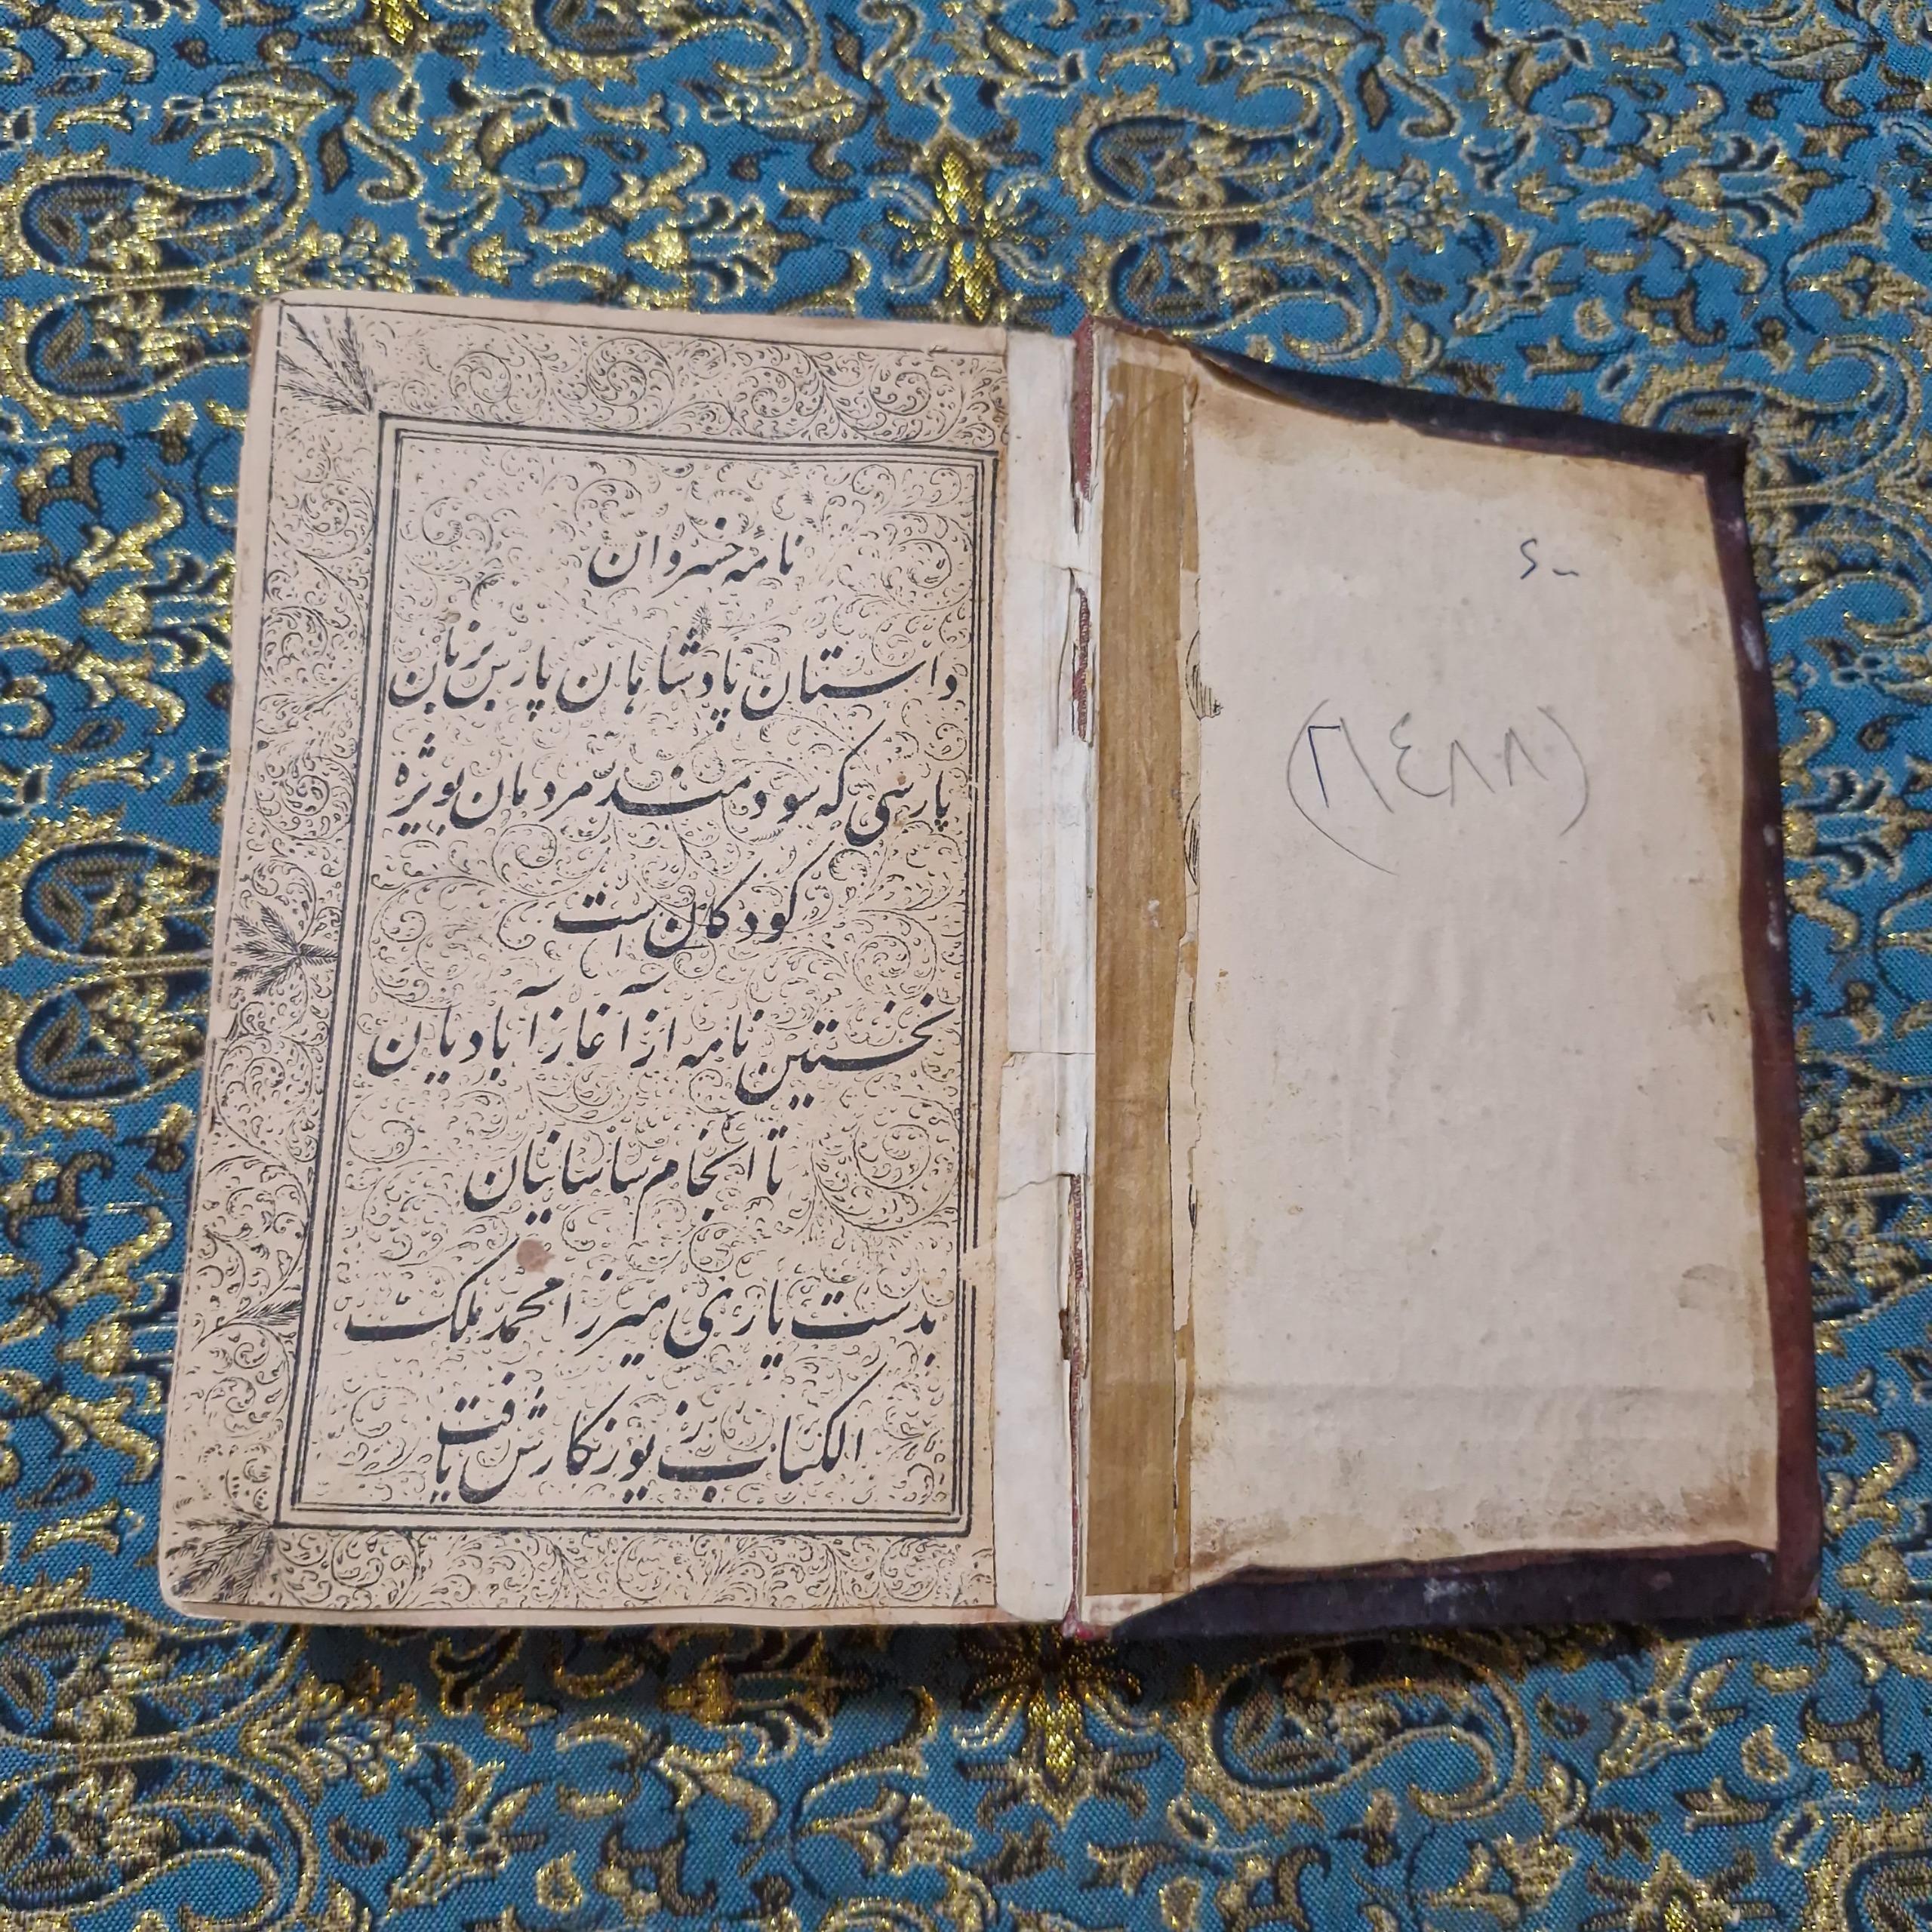 ۶۰
(٢١٤٨٨)
نامهٔ خسروان
داستان پادشاهان پارس بزبان
پارسی که سودمند مردمان بویژه
کودکان است
نخستین نامه از آغاز آبادیان
تا انجام ساسانیان
بدست یاری میرزا محمد ملک
الکتاب زیور نگارش یافت